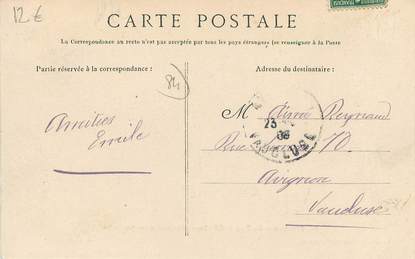 12 €
CARTE POSTALE
La Correspondance au recto n'est pas acceptée par tous les pays étrangers (se renseigner à la Poste
Partie réservée à la correspondance :
Adresse du destinataire :
84
Amitiés
Emile
M Aimé Reynaud
Rue 10.
Avignon
Vaucluse
23
06
VAUCLUSE